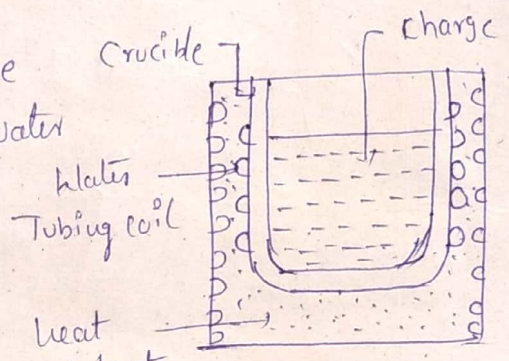 Crucible
charge
e
water
Water
Tubing coil
heat